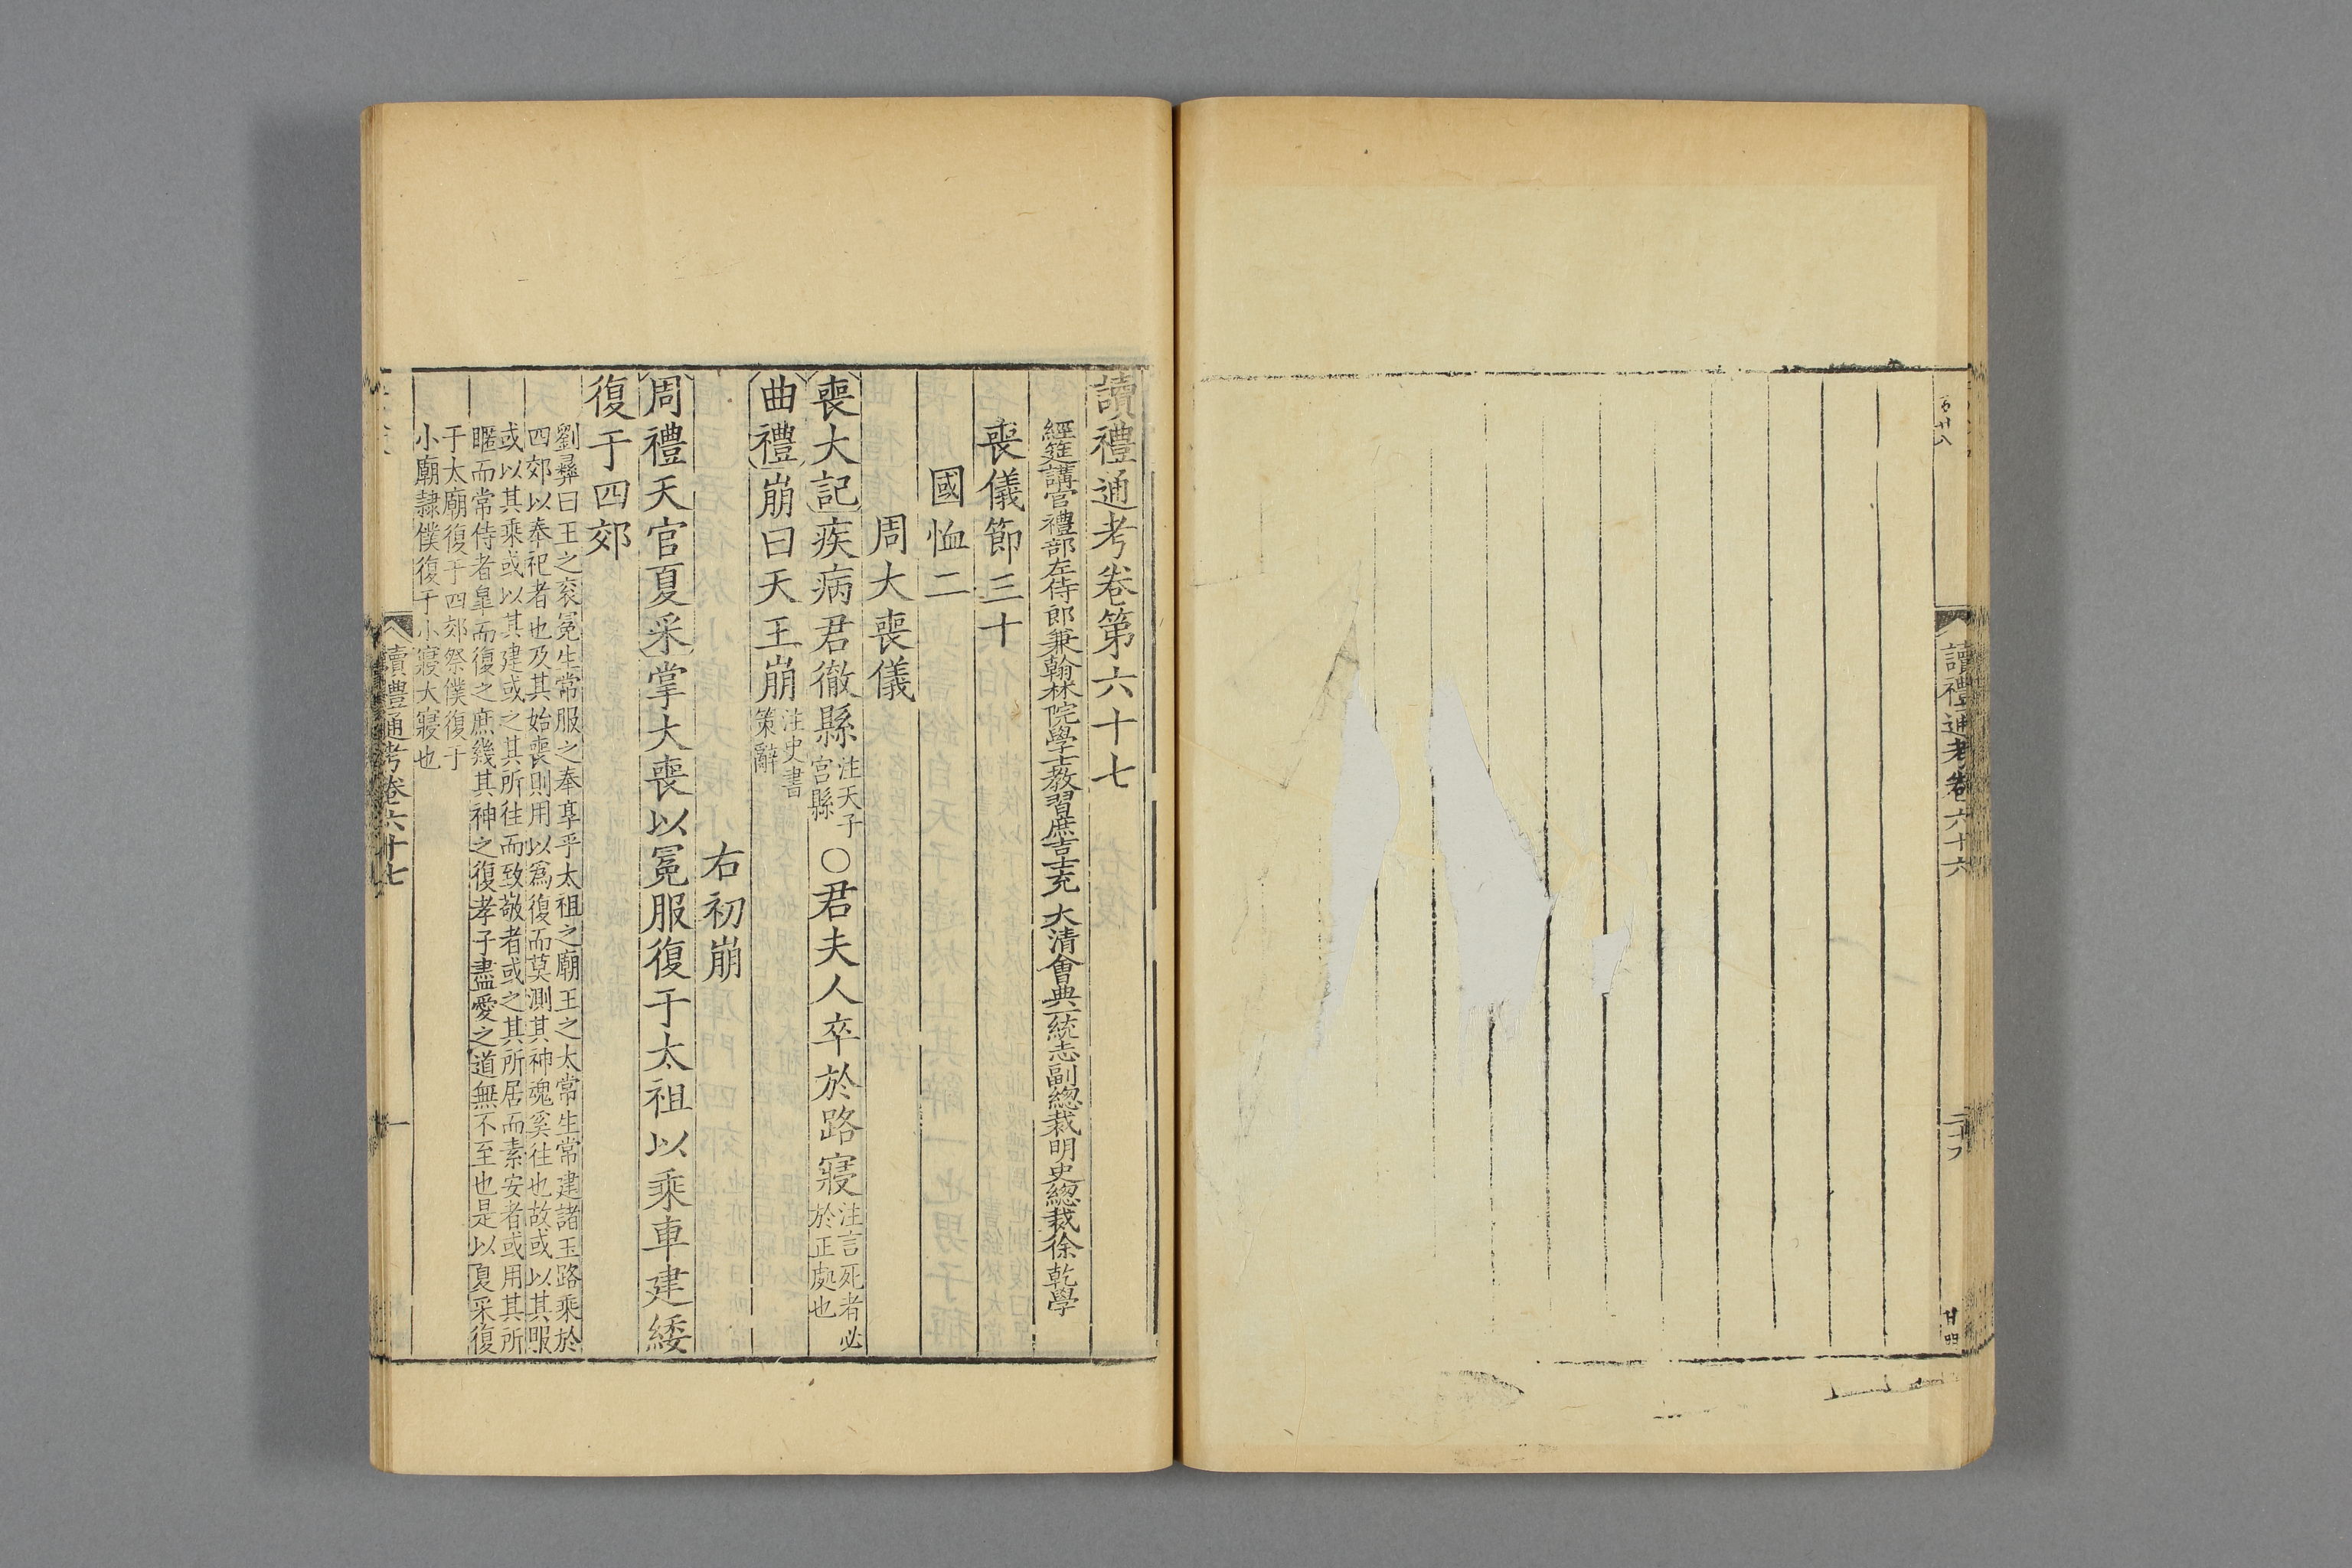 讀禮通考卷六十六
讀禮通考卷第六十七
經筵講官禮部左侍郎兼翰林院學士教習庶吉士充　大清會典一統志副總裁明史總裁徐乾學
喪儀節三十
國恤二
周大喪儀
喪大記疾病君徹縣注天子宮縣○君夫人卒於路寢注言死者必於正處也
曲禮崩曰天王崩注史書策辭
右初崩
周禮天官夏采掌大喪以冕服復于太祖以乘車建綏
復于四郊
劉彝曰王之衮冕生常服之奉享乎太祖之廟王之太常生常建諸玉路乘於
四郊以奉祀者也及其始喪則用以為復而莫測其神魂奚往也故或以其服
或以其乘或以其建或之其所往而致敬者或之其所居而素安者或用其所
暱而常侍者臯而復之庶幾其神之復孝子盡愛之道無不至也是以夏采復
于太廟復于四郊祭僕復于
小廟隸僕復于小寢大寢也
讀禮通考卷六十七
一